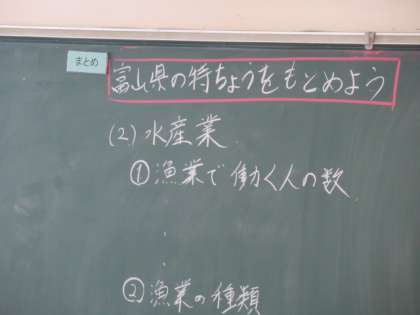 まとめ
富山県の特ちょうをもとめよう
(2)水産業
①漁業で働く人の数
②漁業の種類